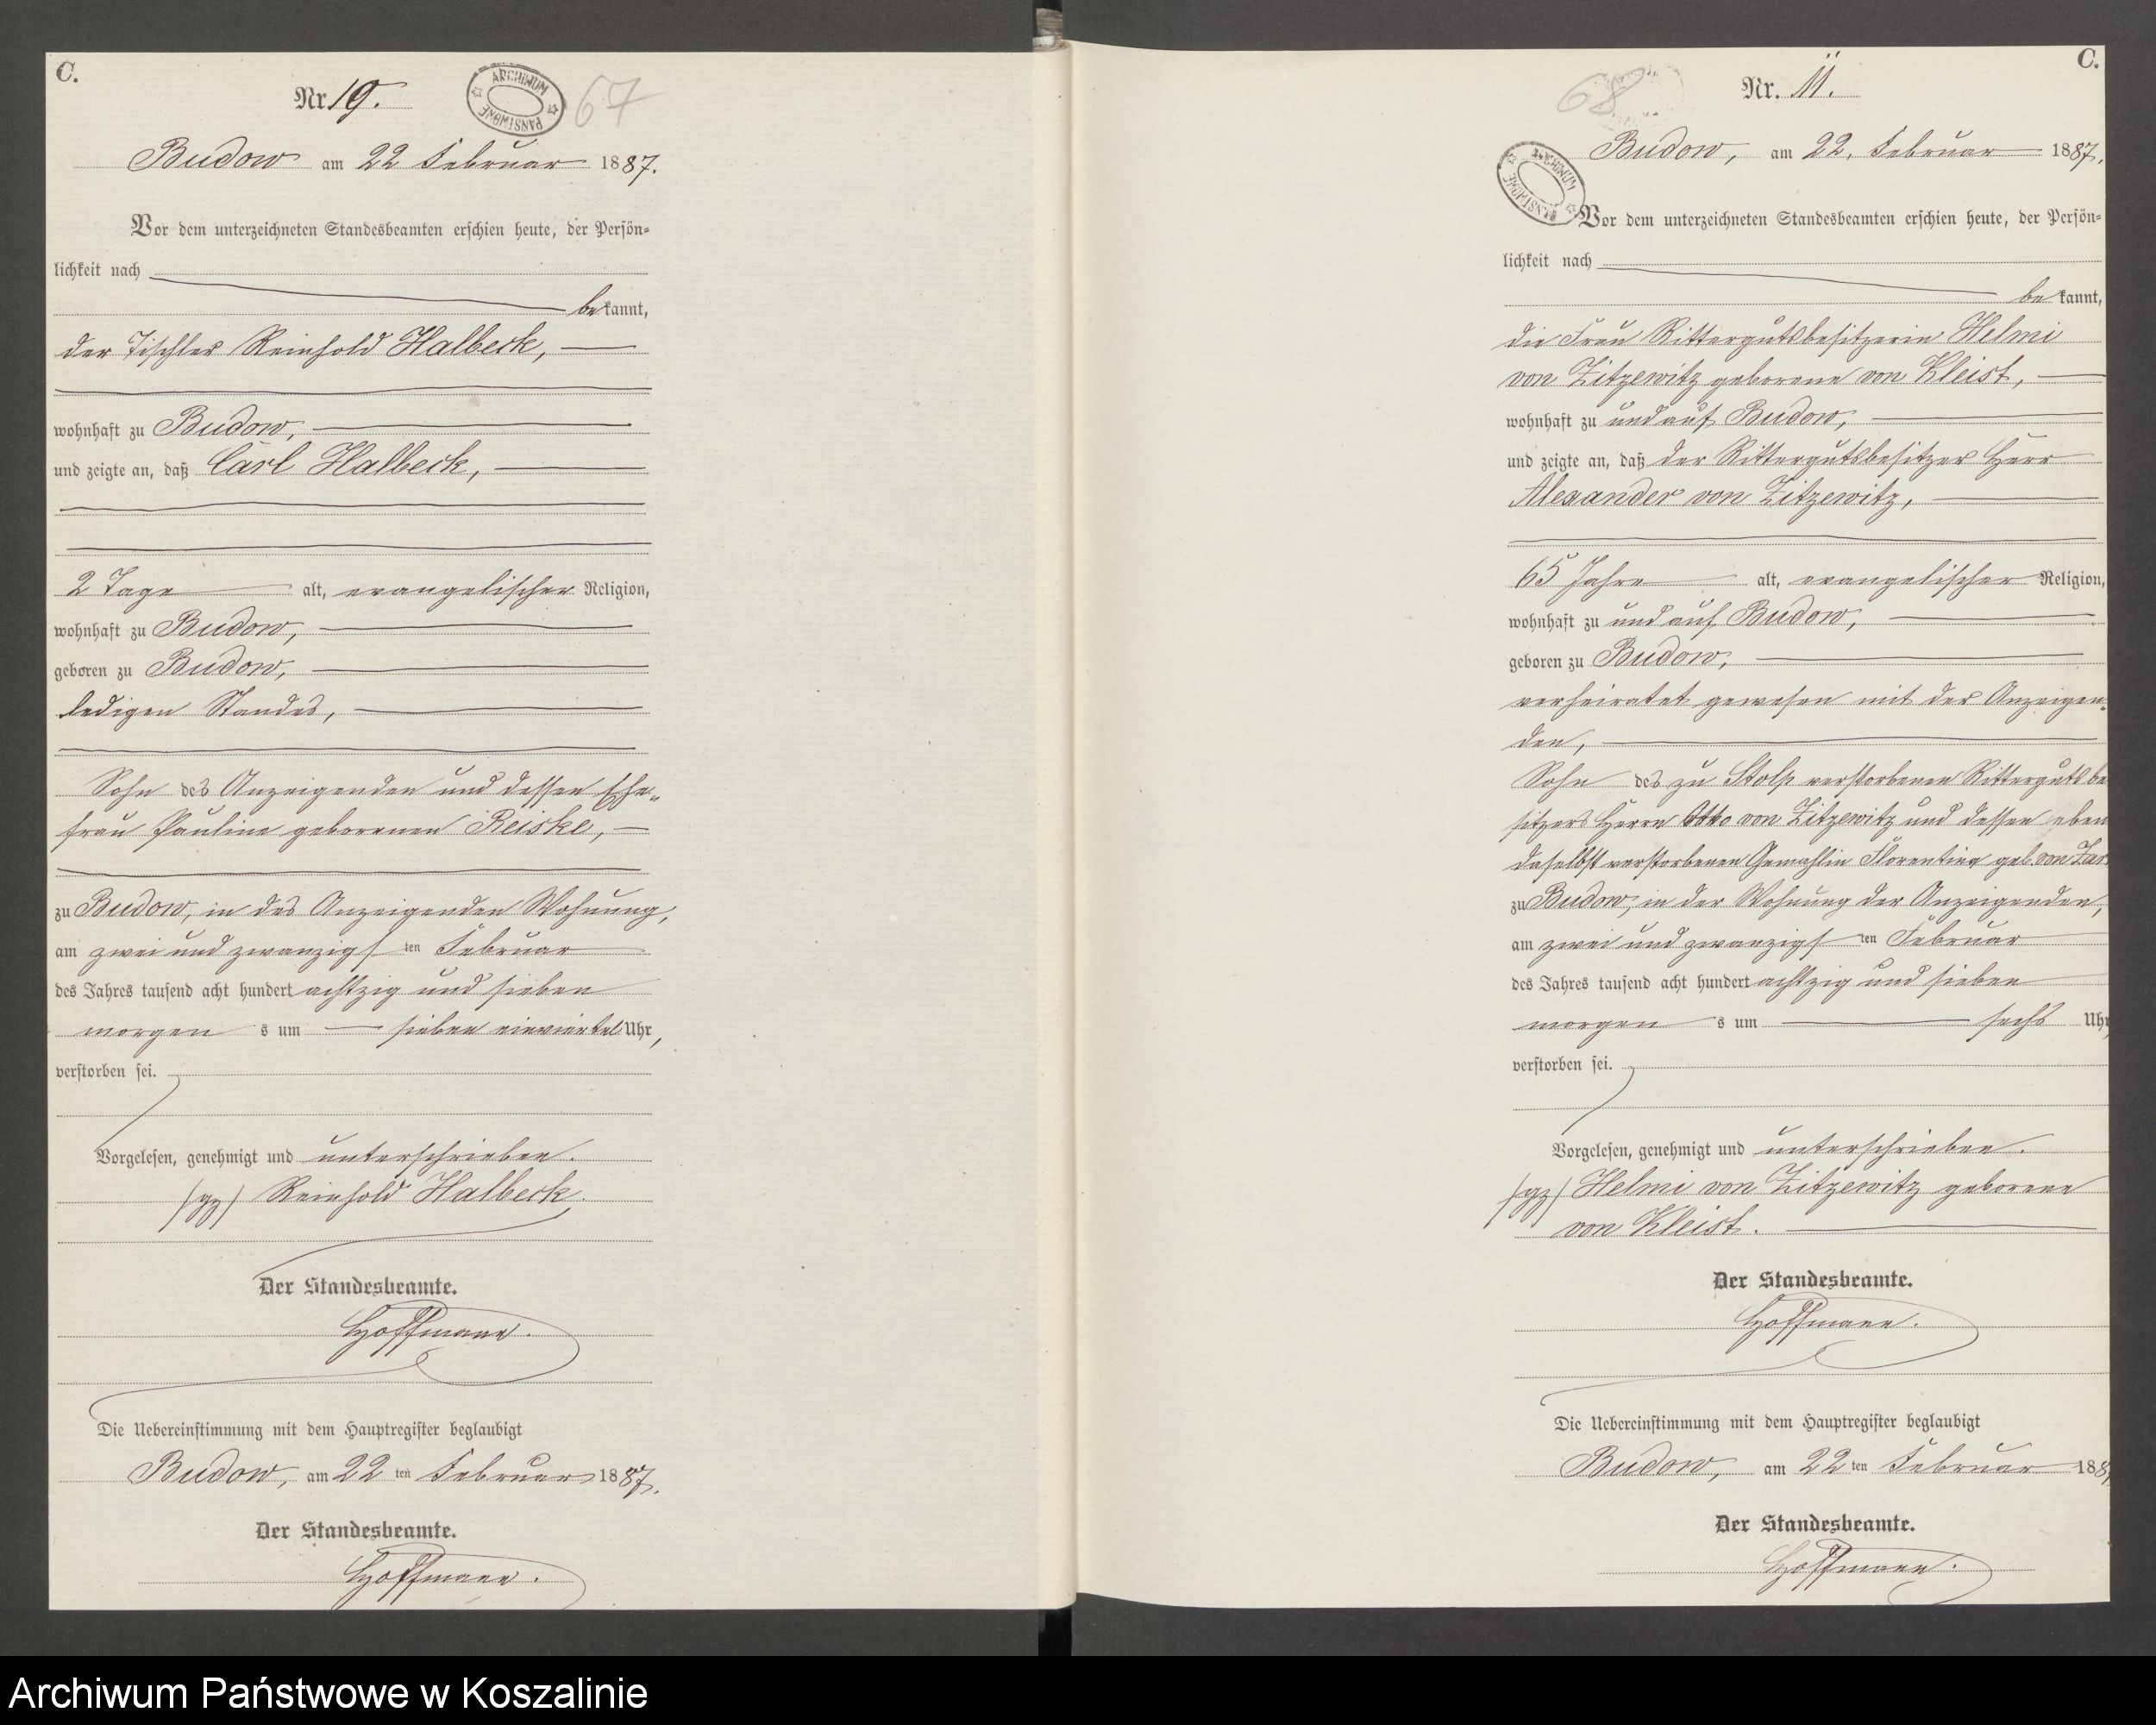 C.
Nr. 19.
ARCHIWUM PAŃSTWOWE
67
Budow am 22 Februar 1887.
Vor dem unterzeichneten Standesbeamten erschien heute, der Persön-
lichkeit nach
bekannt,
der Tischler Reinhold Halbeck,
wohnhaft zu Budow,
und zeigte an, daß Carl Halbeck,
2 Tage alt, evangelischer Religion,
wohnhaft zu Budow,
geboren zu Budow,
ledigen Standes,
Sohn des Anzeigenden und dessen Ehe-
frau Pauline geborenen Reiske,
zu Budow, in des Anzeigenden Wohnung,
am zwei und zwanzigsten Februar
des Jahres tausend acht hundert achtzig und sieben
morgens um sieben einviertel Uhr,
verstorben sei.
Vorgelesen, genehmigt und unterschrieben.
(gz) Reinhold Halbeck.
Der Standesbeamte.
Hoffmann.
Die Uebereinstimmung mit dem Hauptregister beglaubigt
Budow, am 22ten Februar 1887.
Der Standesbeamte.
Hoffmann.
C.
Nr. 11.
68
ARCHIWUM PAŃSTWOWE
Budow, am 22. Februar 1887.
Vor dem unterzeichneten Standesbeamten erschien heute, der Persön-
lichkeit nach
bekannt,
die Frau Rittergutsbesitzerin Helmi
von Zitzewitz geborene von Kleist,
wohnhaft zu und auf Budow,
und zeigte an, daß der Rittergutsbesitzer Herr
Alexander von Zitzewitz,
65 Jahre alt, evangelischer Religion,
wohnhaft zu und auf Budow,
geboren zu Budow,
verheiratet gewesen mit der Anzeigen-
den,
Sohn des zu Stolp verstorbenen Rittergutsbe
sitzers Herrn Otto von Zitzewitz und dessen eben
daselbst verstorbenen Gemahlin Florentine geb. von
zu Budow, in der Wohnung der Anzeigenden,
am zwei und zwanzigsten Februar
des Jahres tausend acht hundert achtzig und sieben
morgens um sechs Uhr,
verstorben sei.
Vorgelesen, genehmigt und unterschrieben.
(gz) Helmi von Zitzewitz geborene
von Kleist.
Der Standesbeamte.
Hoffmann.
Die Uebereinstimmung mit dem Hauptregister beglaubigt
Budow, am 22ten Februar 188
Der Standesbeamte.
Hoffmann.
Archiwum Państwowe w Koszalinie